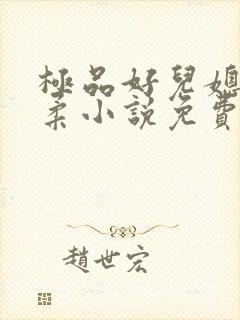 極品好兒媳
柔小說免費
趙世宏